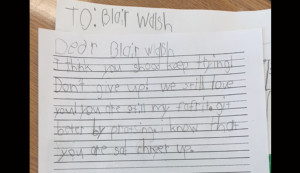 TO: Blair Walsh
Dear Blair Walsh
I think you shood keep trying!
Don't give up! we still love
you! You are still my
get
beter by I know that
you are sad cheer up.